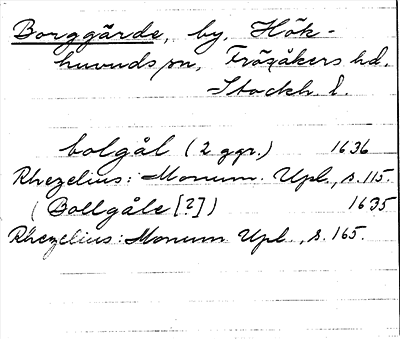 Borggärde, by, Hök-
huvuds sn, Frösåkers hd.
Stockh. l.
bolgål (2 ggr.) 1636
Rhezelius: Monum. Upl., s. 115.
(Bollgåle [?]) 1635
Rhezelius: Monum Upl., s. 165.